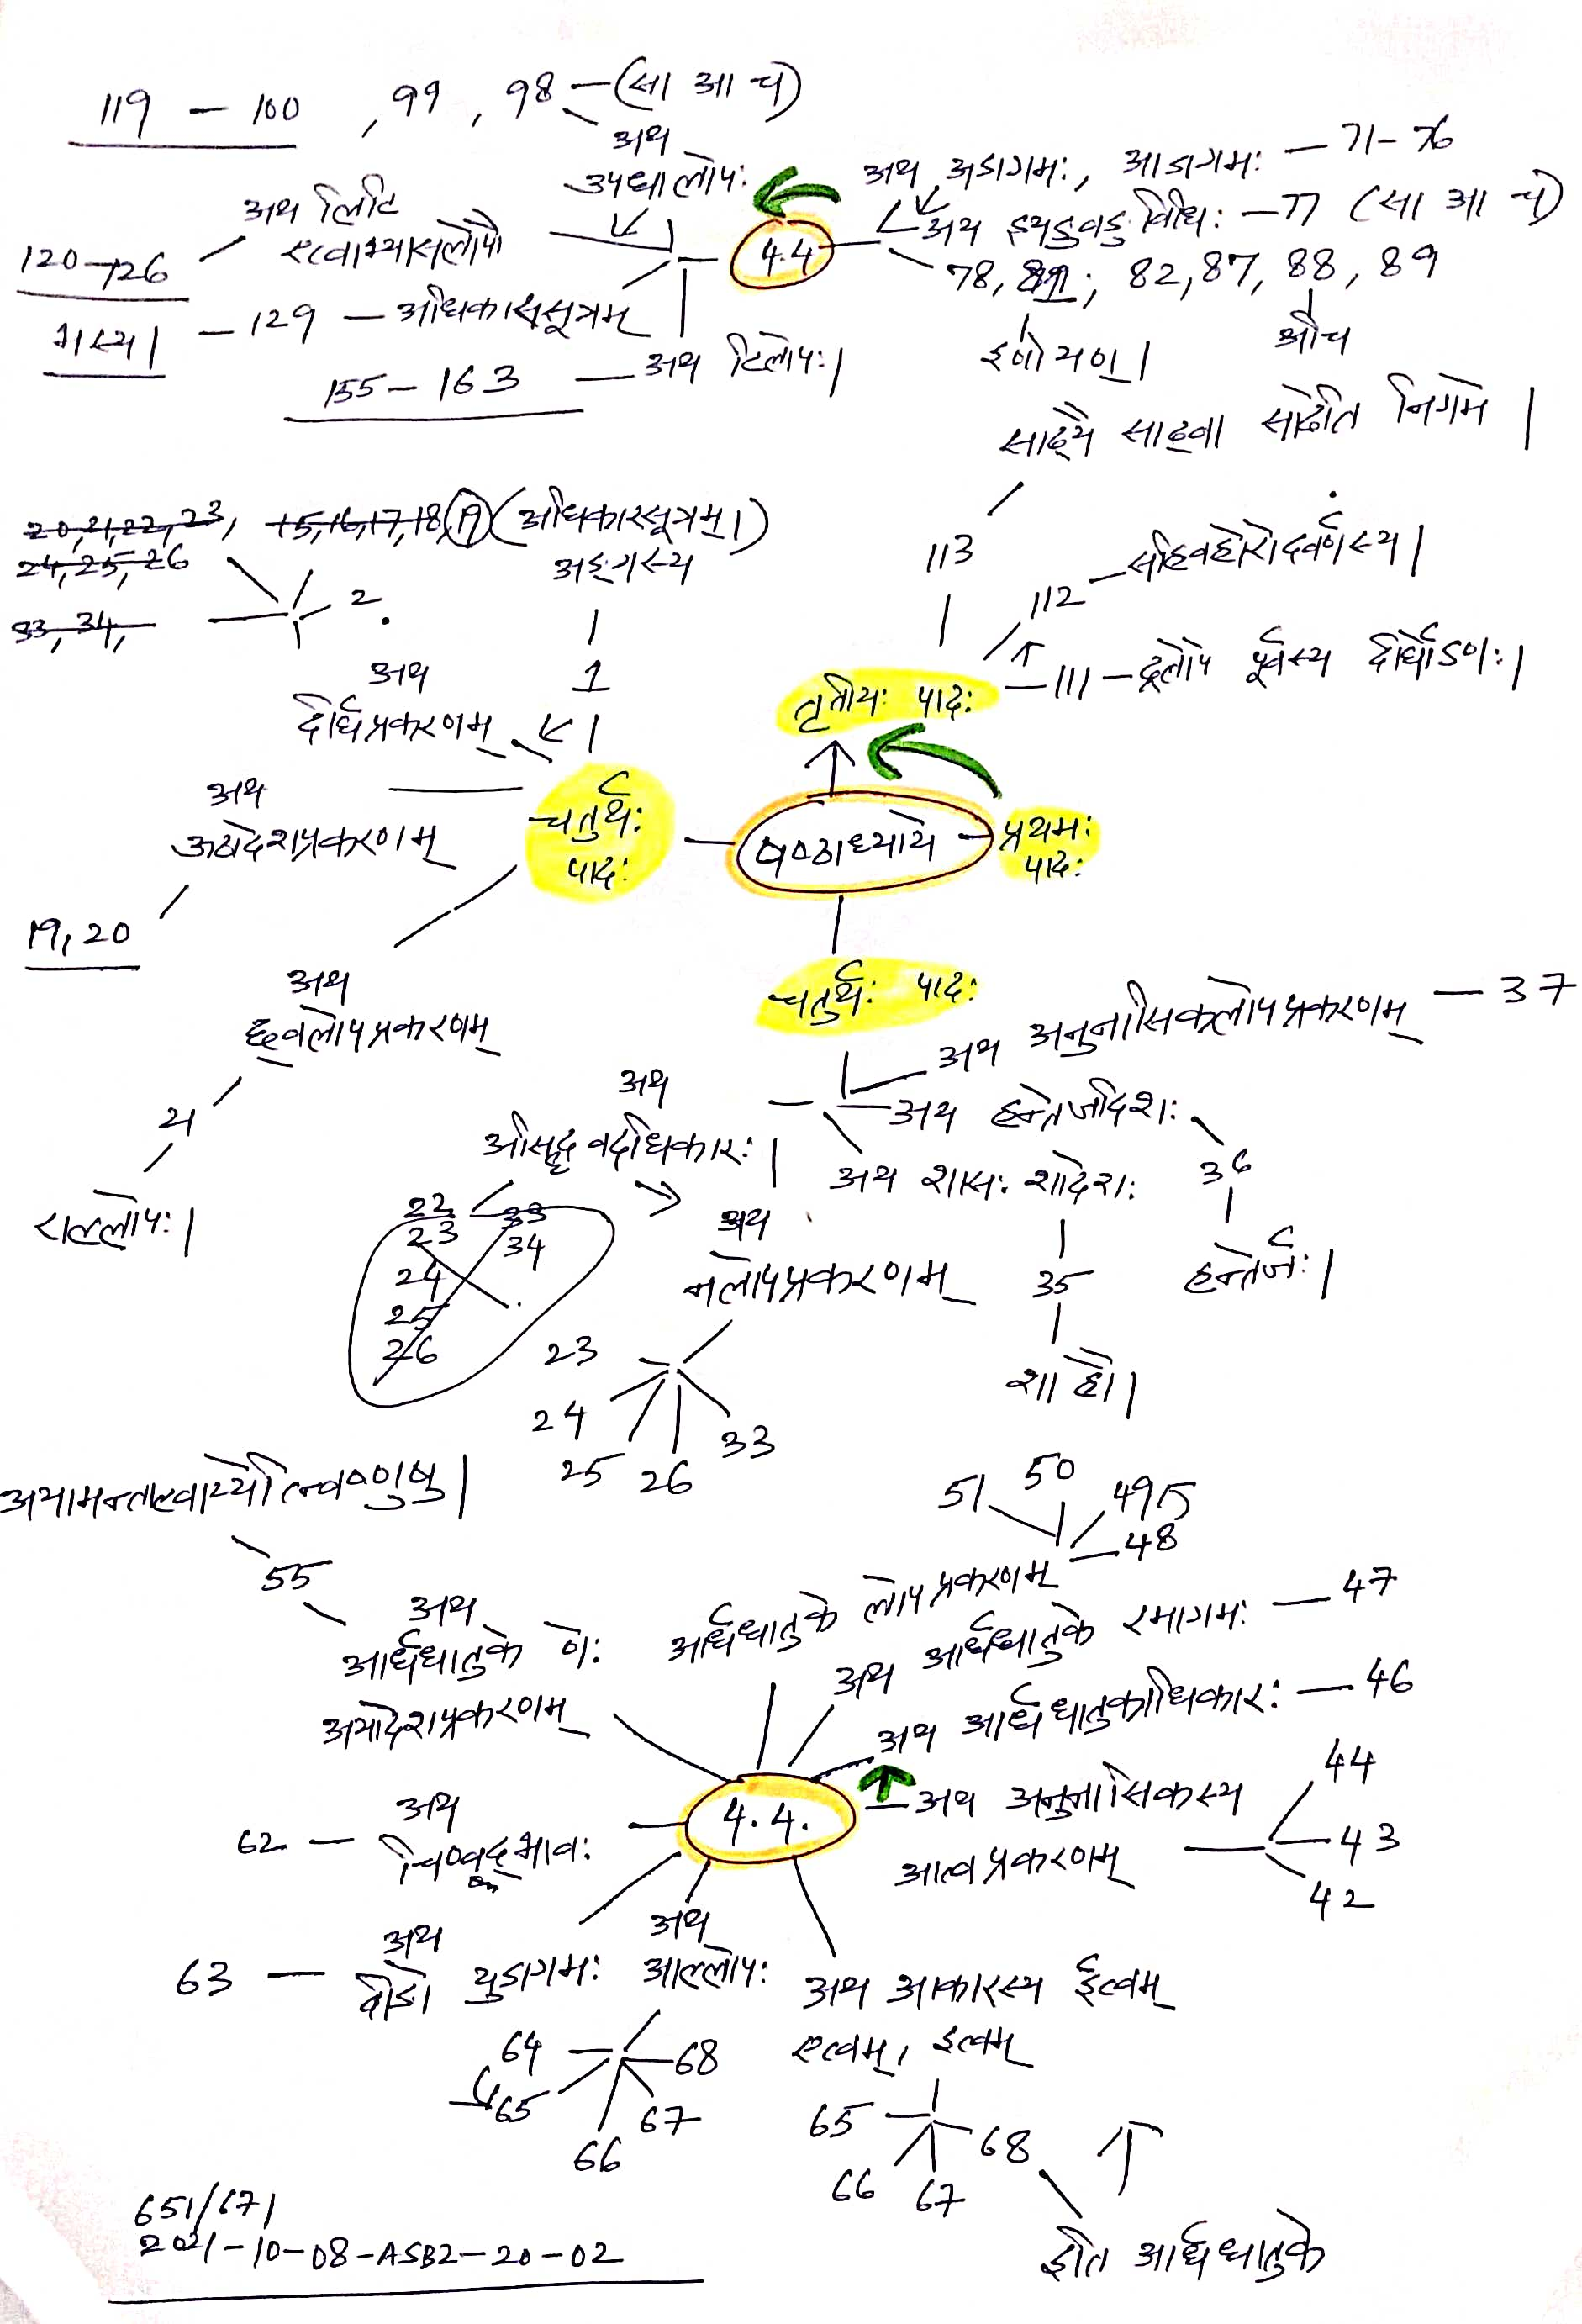 119 – 100 , 99 , 98 – (सा आ च)
अथ
उपधालोपः
अथ अडागमः, आडागमः – 71-76
अथ इयङुवङ् विधिः – 77 (सा आ च)
अथ लिटि
एत्वाभ्यासलोपौ
120-126
4.4
78, 81; 82, 87, 88, 89
इणो यण्।
औच
भस्य। – 129 – अधिकारसूत्रम्
155 – 163 – अथ टिलोपः।
साढ्यै साढ्वा साढेति निगमे।
20, 21, 22, 23, 15, 16, 17, 18, 1 (अधिकारसूत्रम्।)
24, 25, 26
33, 34,
2
अङ्गस्य
1
113
112 – सहिवहोरोदवर्णस्य।
111 – ढ्रलोपे पूर्वस्य दीर्घोऽणः।
अथ
दीर्घप्रकरणम्
तृतीयः पादः
अथ
ऊठादेशप्रकरणम्
19, 20
चतुर्थः
पादः
षष्ठाध्याये
प्रथमः
पादः
चतुर्थः पादः
अथ
छ्वलोपप्रकरणम्
21
राल्लोपः।
अथ अनुनासिकलोपप्रकरणम् – 37
अथ हन्तेर्जादेशः
36
हन्तेर्जः।
अथ
असिद्धवदधिकारः।
अथ शासः शादेशः
35
शा हौ।
22 33
23 34
24
25
26
अथ
नलोपप्रकरणम्
23
24
25 26
33
अयामन्ताल्वाय्येत्न्विष्णुषु।
55
51 50 49
48
अथ
आर्धधातुके णेः
अयादेशप्रकरणम्
आर्धधातुके लोपप्रकरणम्
अथ आर्धधातुके रमागमः – 47
अथ आर्धधातुकाधिकारः – 46
4.4.
अथ अनुनासिकस्य
आत्वप्रकरणम्
44
43
42
62 – अथ
चिण्वद्भावः
63 – अथ
दीङो युडागमः
अथ
आल्लोपः
64
65
66
67
68
अथ आकारस्य ईत्वम्
एत्वम्, इत्वम्
65
66 67
68
ईति आर्धधातुके
651/671
2021-10-08-ASB2-20-02